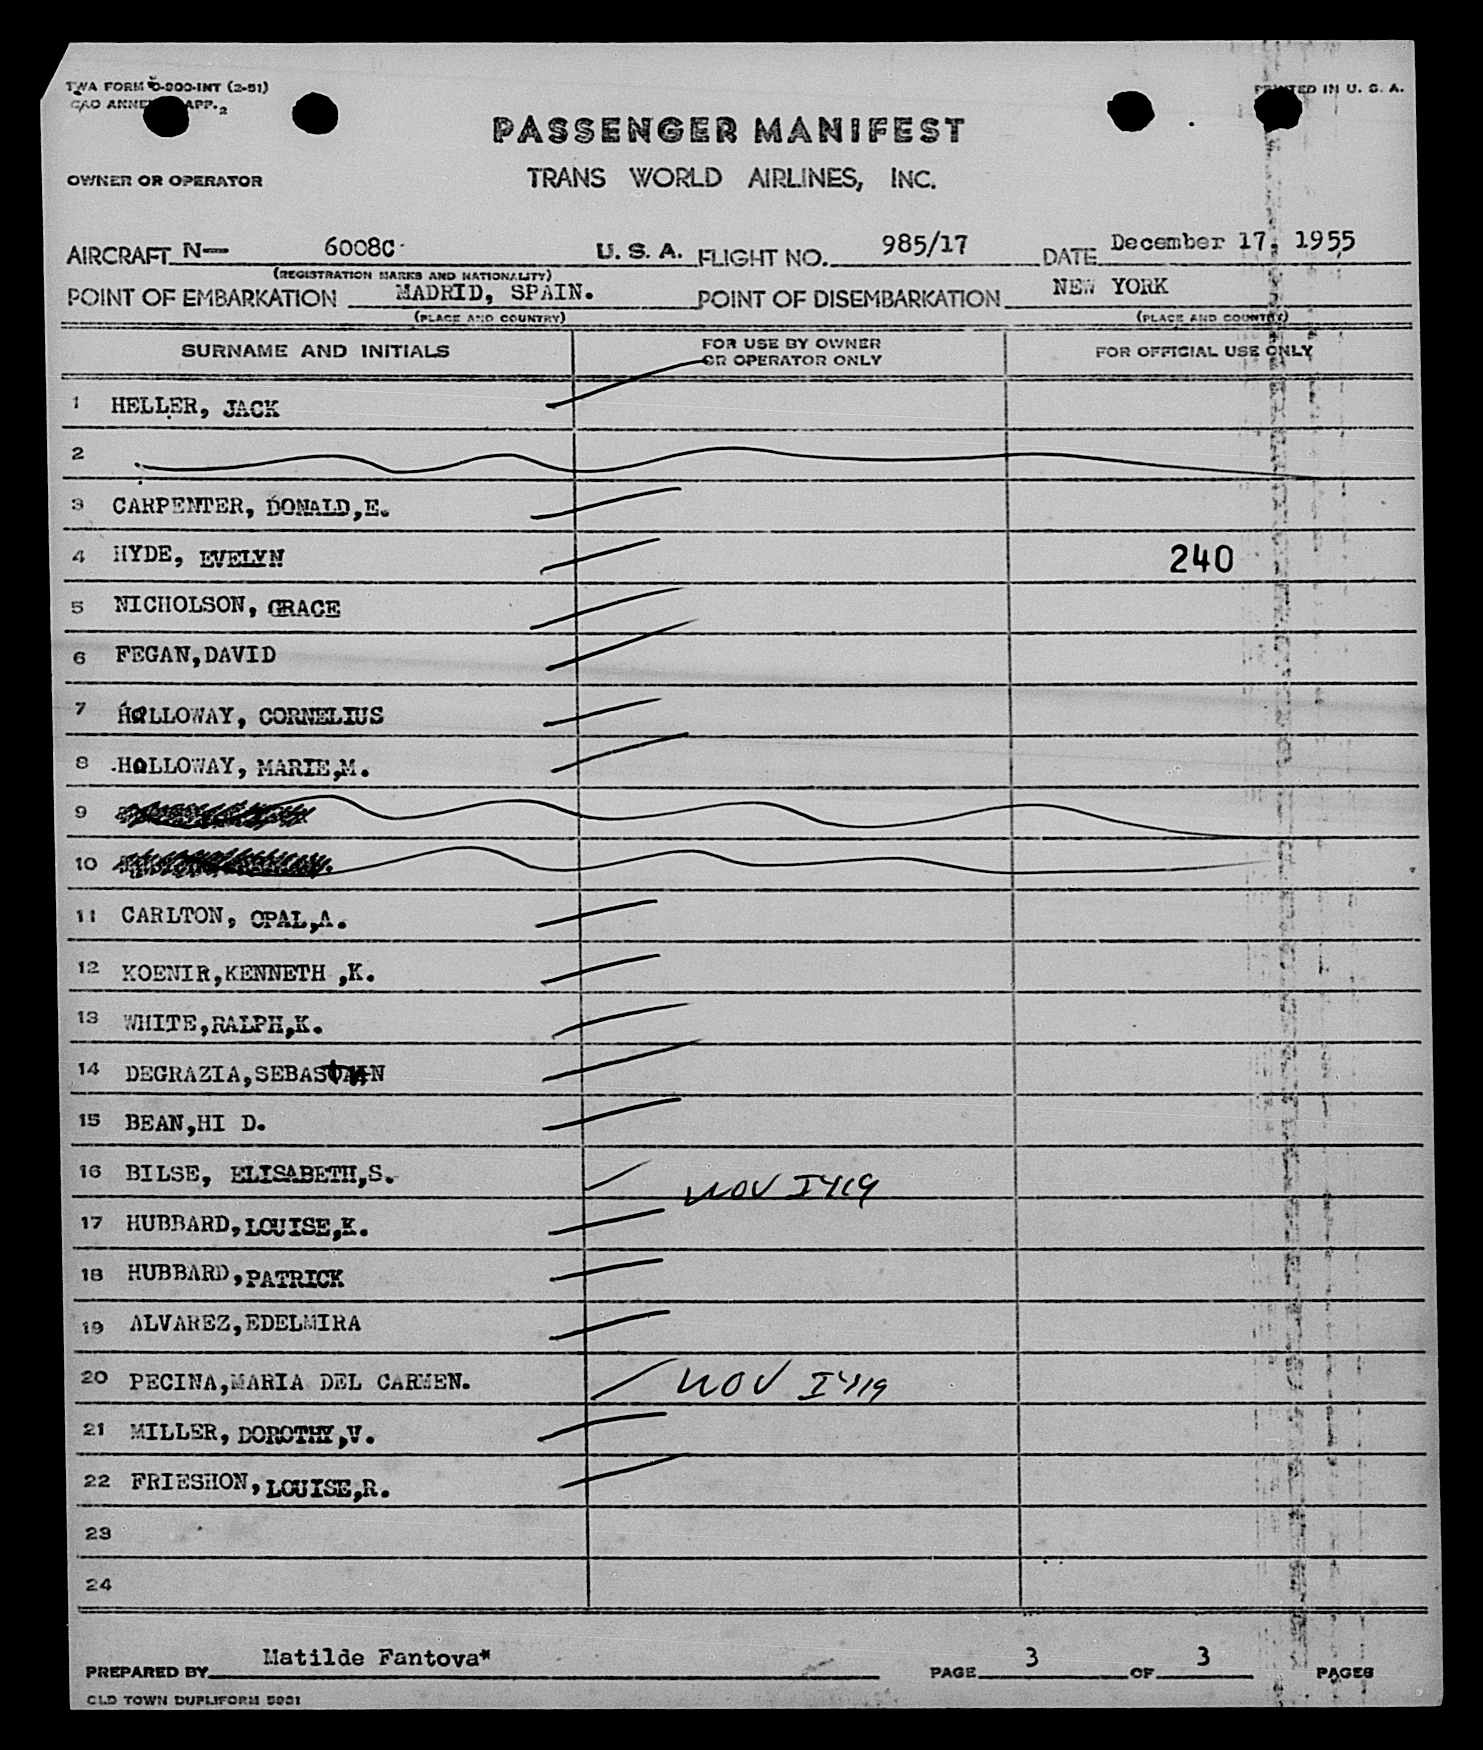 TWA FORM O-900-INT (2-51)
PRINTED IN U. S. A.
PASSENGER MANIFEST
OWNER OR OPERATOR
TRANS WORLD AIRLINES, INC.
AIRCRAFT N— 6008C U. S. A. FLIGHT NO. 985/17 DATE December 17, 1955
(REGISTRATION MARKS AND NATIONALITY)
POINT OF EMBARKATION MADRID, SPAIN. POINT OF DISEMBARKATION NEW YORK
(PLACE AND COUNTRY) (PLACE AND COUNTRY)
SURNAME AND INITIALS FOR USE BY OWNER OR OPERATOR ONLY FOR OFFICIAL USE ONLY
1 HELLER, JACK
2
3 CARPENTER, DONALD,E.
4 HYDE, EVELYN 240
5 NICHOLSON, GRACE
6 FEGAN,DAVID
7 HOLLOWAY, CORNELIUS
8 HOLLOWAY, MARIE,M.
9
10
11 CARLTON, OPAL,A.
12 KOENIR,KENNETH ,K.
13 WHITE,RALPH,K.
14 DEGRAZIA,
15 BEAN,HI D.
16 BILSE, ELISABETH,S. NOV
17 HUBBARD,LOUISE,K.
18 HUBBARD,PATRICK
19 ALVAREZ,EDELMIRA
20 PECINA,MARIA DEL CARMEN. NOV
21 MILLER, DOROTHY,V.
22 FRIESHON,LOUISE,R.
23
24
PREPARED BY Matilde Fantova* PAGE 3 OF 3 PAGES
OLD TOWN DUPLIFORM